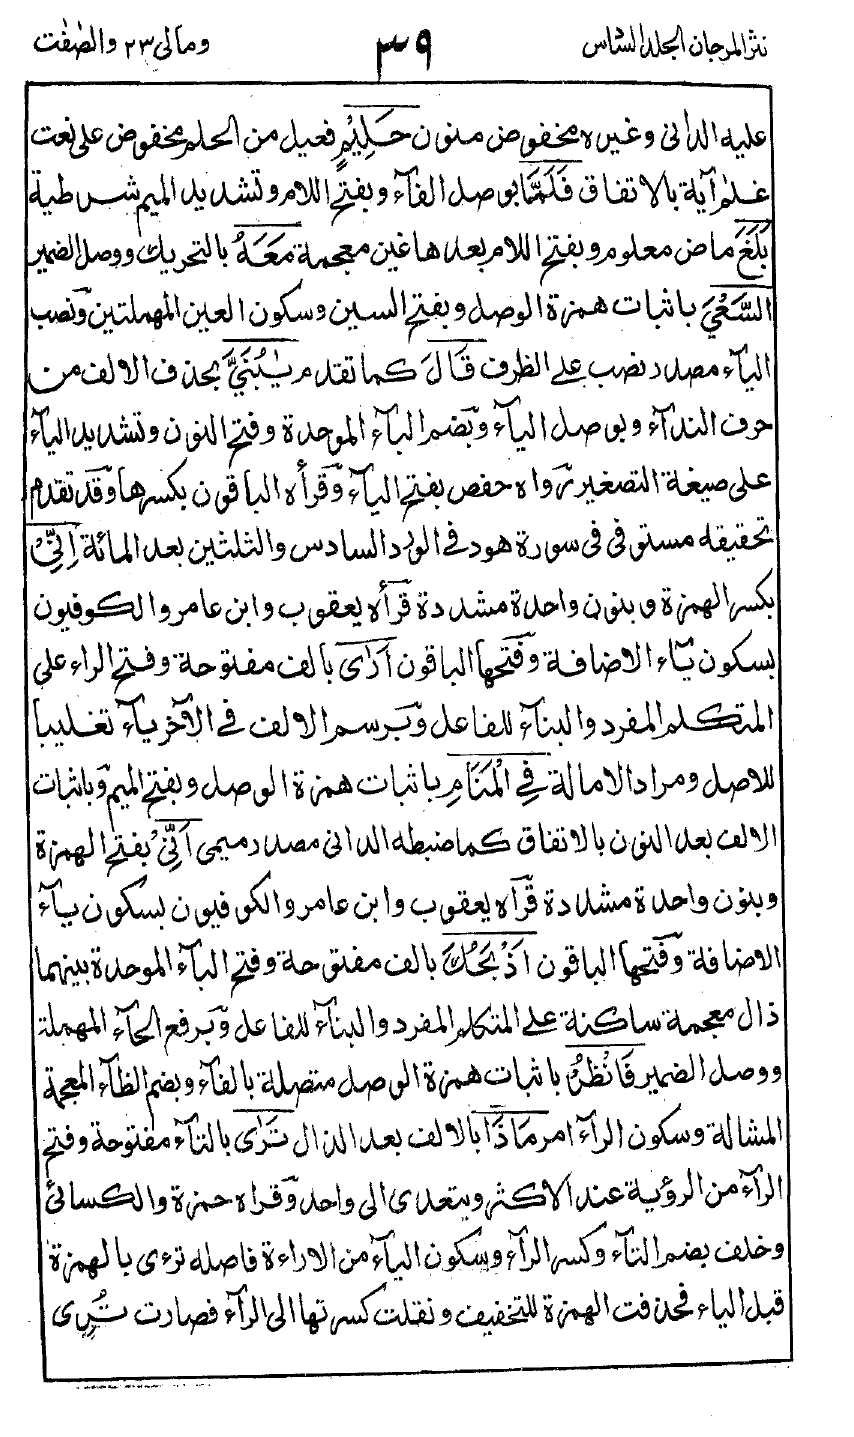 نثر المرجان الجلد السادس
٣٩
ومالی ٢٣ والصّٰفّٰت
عليه الدانى وغيره مخفوض منون حَلِيْمٍ فعيل من الحلم مخفوض على نعت
غلٰم آية بالاتفاق فَلَمَّا بوصل الفآء وبفتح اللام وتشديد الميم شرطية
بَلَغَ ماض معلوم وبفتح اللام بعدها غين معجمة مَعَهُ بالتحريك ووصل الضمير
السَّعْيَ باثبات همزة الوصل وبفتح السين وسكون العين المهملتين ونصب
اليآء مصدر نصب على الظرف قَالَ كما تقدم يٰبُنَيَّ بحذف الالف من
حرف الندآء وبوصل اليآء وبضم البآء الموحدة وفتح النون وتشديد اليآء
على صيغة التصغير رواه حفص بفتح اليآء وقرأه الباقون بكسرها وقد تقدم
تحقيقه مستوفى فى سورة هود فى الورد السادس والثلثين بعد المائة اِنِّىْ
بكسر الهمزة وبنون واحدة مشددة قرأه يعقوب وابن عامر والكوفيون
بسكون يآء الاضافة وفتحها الباقون اَرٰى بالف مفتوحة وفتح الراء على
المتكلم المفرد والبنآء للفاعل وبرسم الالف فى الآخر يآء تغليبا
للاصل ومراد الامالة فِي الْمَنَامِ باثبات همزة الوصل وبفتح الميم وباثبات
الالف بعد النون بالاتفاق كما ضبطه الدانى مصدر ميمى اَنِّىْ بفتح الهمزة
وبنون واحدة مشددة قرأه يعقوب وابن عامر والكوفيون بسكون يآء
الاضافة وفتحها الباقون اَذْبَحُكَ بالف مفتوحة وفتح البآء الموحدة بينهما
ذال معجمة ساكنة على المتكلم المفرد والبنآء للفاعل وبرفع الحآء المهملة
ووصل الضمير فَانْظُرْ باثبات همزة الوصل متصلة بالفآء وبضم الظآء المعجمة
المشالة وسكون الرآء امر مَاذَا بالالف بعد الذال تَرٰى بالتآء مفتوحة وفتح
الرآء من الرؤية عند الاكثر ويتعدى الى واحد وقراه حمزة والكسائى
وخلف بضم التآء وكسر الرآء وسكون اليآء من الاراءة فاصله ترءى بالهمزة
قبل الياء فحذفت الهمزة للتخفيف ونقلت كسرتها الى الرآء فصارت تُرِى